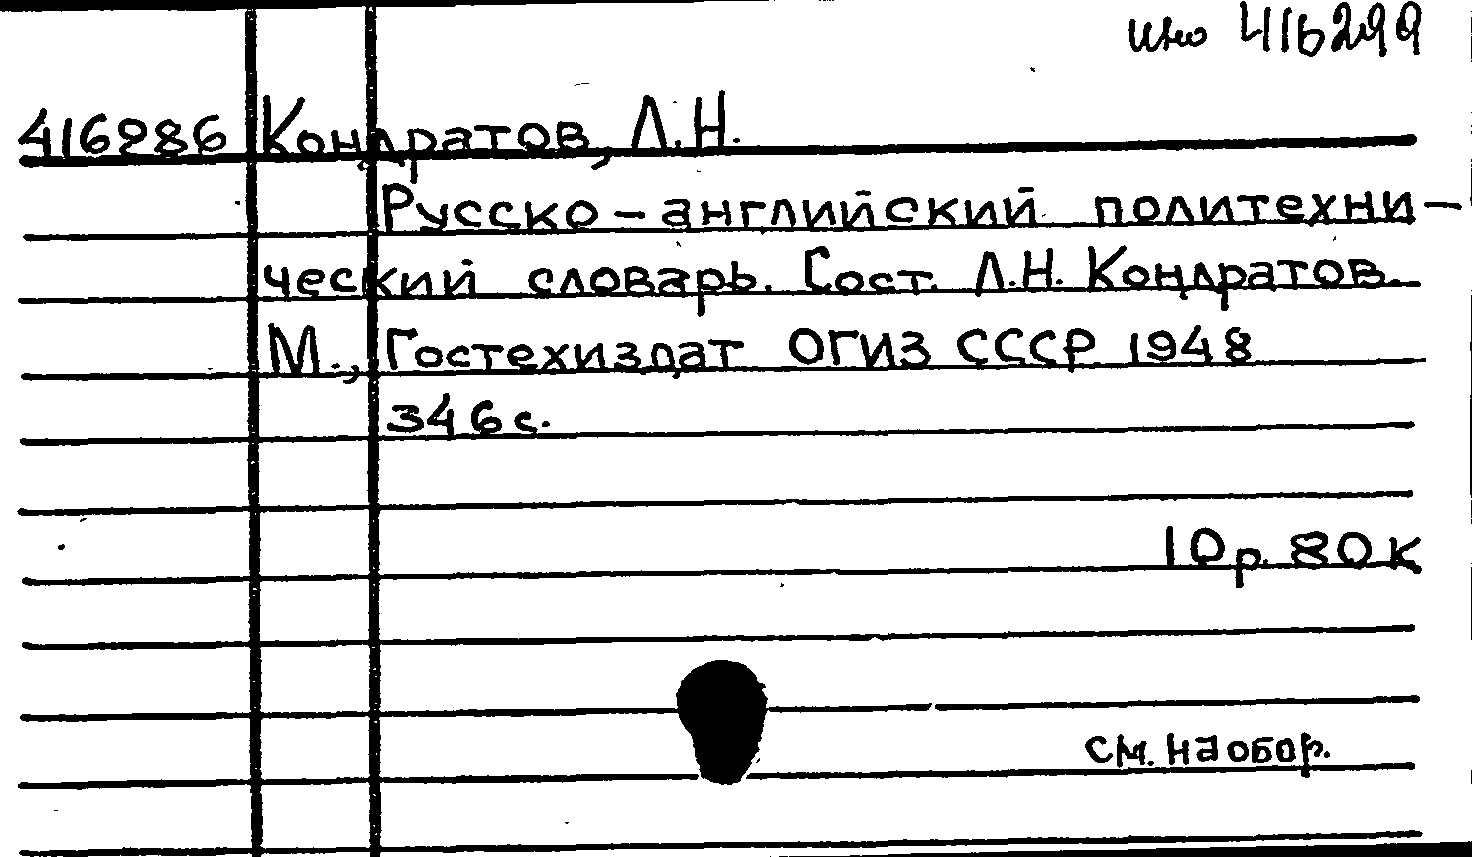 416299
416286 Кондратов, Л.Н.
Русско-английский политехни-
ческий словарь. Сост. Л.Н. Кондратов.
М., Гостехиздат ОГИЗ СССР 1948
346 с.
10 р. 80 к
см. на обор.